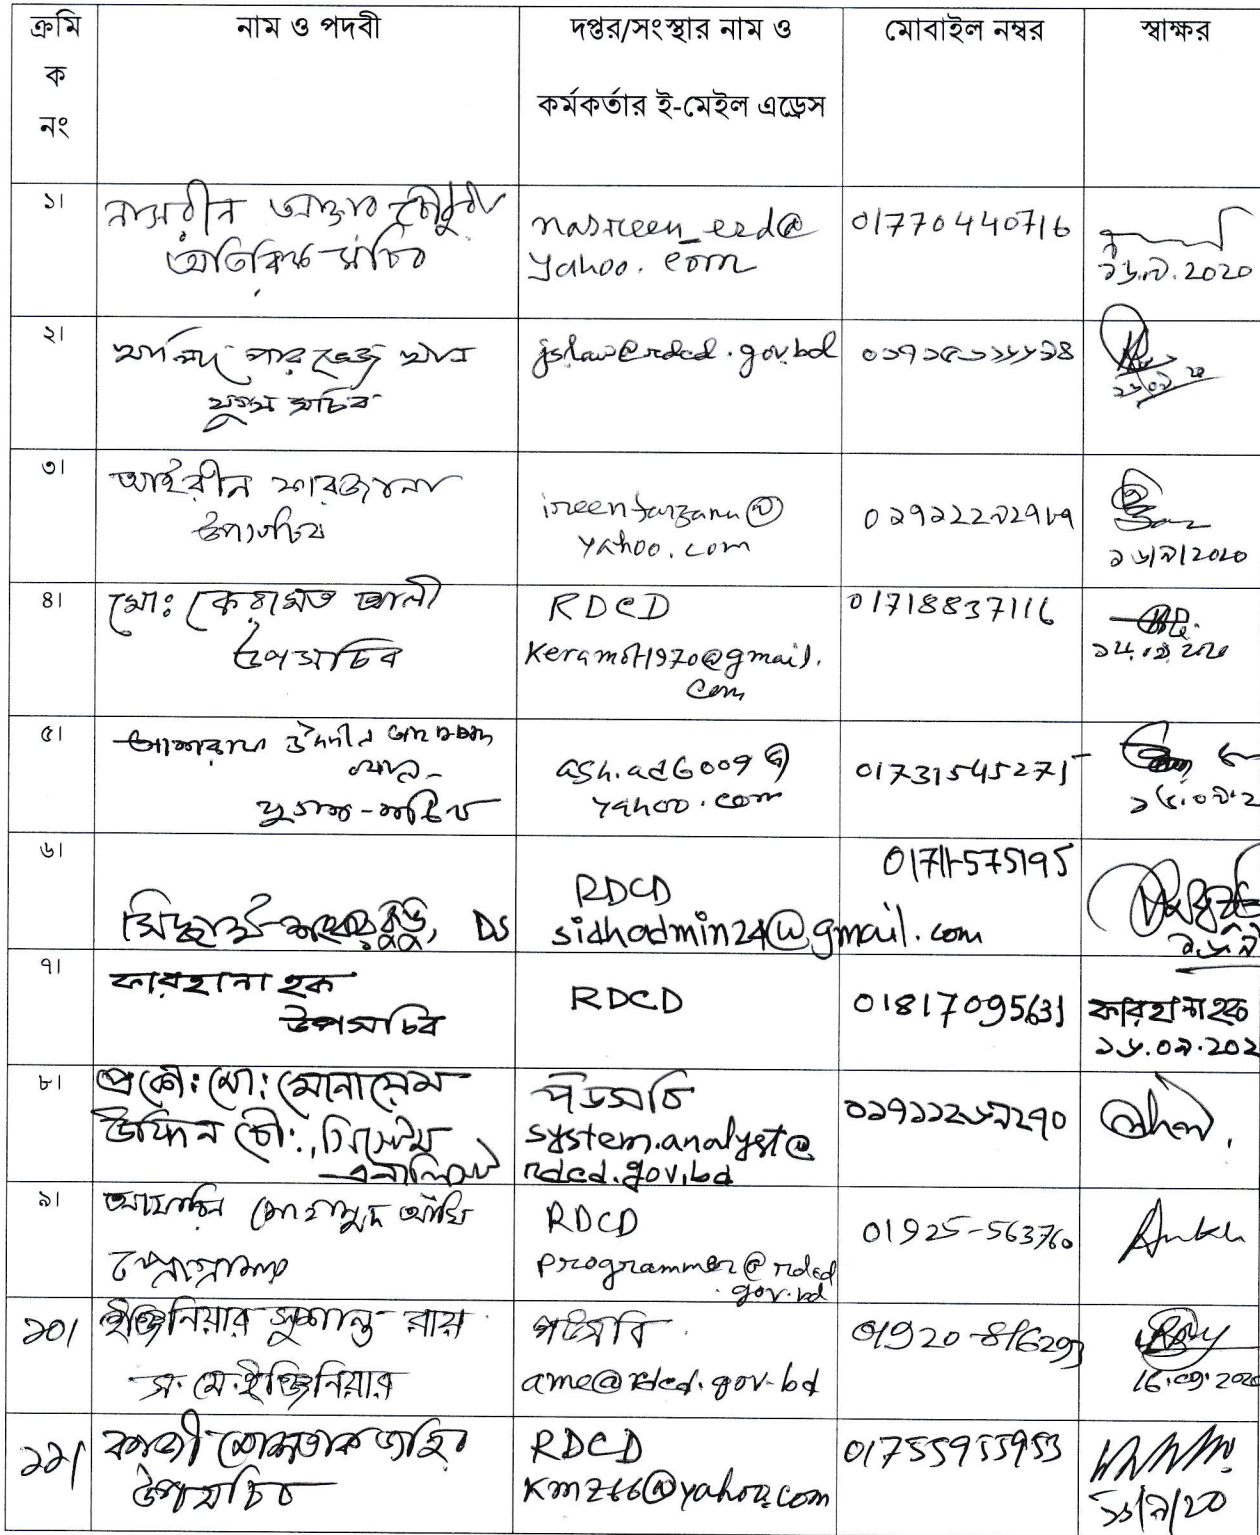 ক্রমি
ক
নং
নাম ও পদবী
দপ্তর/সংস্থার নাম ও
কর্মকর্তার ই-মেইল এড্রেস
মোবাইল নম্বর
স্বাক্ষর
১।
নাসরীন আক্তার চৌধুরী
অতিরিক্ত সচিব
nasreen_erd@
yahoo.com
01770440716
১৬.৯.2020
২।
পারভেজ খান
যুগ্ম সচিব
jslaw@rdcd.gov.bd
৩।
আইরীন ফারজানা
উপসচিব
ireenfarzana@
yahoo.com
১৬/৯/2020
৪।
মোঃ কেরামত আলী
উপসচিব
RDCD
keramot1970@gmail.
com
01718837116
৫।
আশরাফ উদ্দীন আহাম্মদ
খান
যুগ্ম-সচিব
ash.ad6009@
yahoo.com
01731545275
৬।
সিদ্ধার্থ শংকর কুন্ডু, DS
RDCD
sidhadmin24@gmail.com
01711-575195
৭।
ফারহানা হক
উপসচিব
RDCD
01817095631
ফারহানা হক
১৬.০৯.২০২
৮।
প্রকৌঃ মোঃ মোনায়েম
উদ্দিন চৌঃ, সিস্টেম
এনালিস্ট
পউসবি
system.analyst@
rdcd.gov.bd
৯।
মোহাম্মদ
প্রোগ্রামার
RDCD
programmer@rdcd
.gov.bd
01925-563760
১০।
ইঞ্জিনিয়ার সুশান্ত রায়
স. মে. ইঞ্জিনিয়ার
পউসবি
ame@rdcd.gov.bd
01920-816293
16.09.2020
১১।
কাজী মোশতাক জহির
উপসচিব
RDCD
kmz66@yahoo.com
01755955953